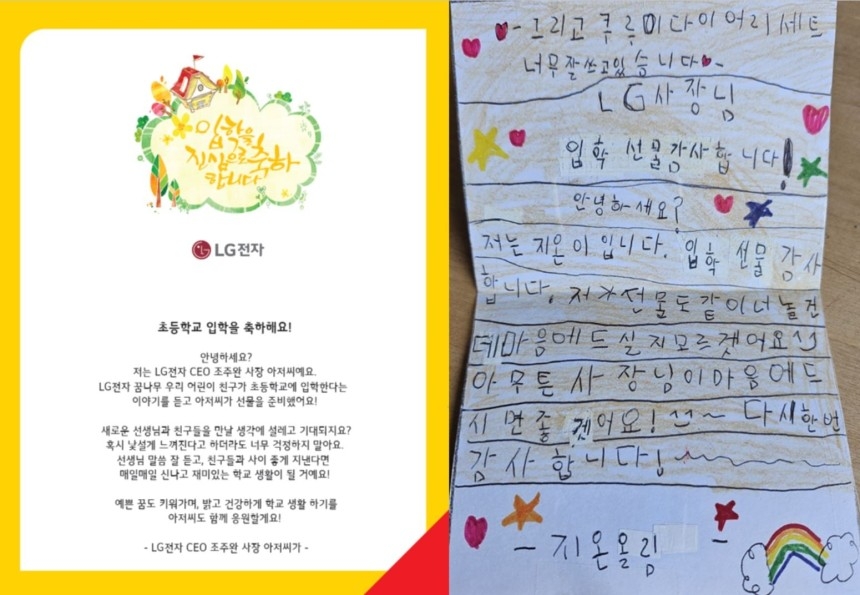 입학을
진심으로 축하
합니다
LG전자
초등학교 입학을 축하해요!
안녕하세요?
저는 LG전자 CEO 조주완 사장 아저씨예요.
LG전자 꿈나무 우리 어린이 친구가 초등학교에 입학한다는
이야기를 듣고 아저씨가 선물을 준비했어요!
새로운 선생님과 친구들을 만날 생각에 설레고 기대되지요?
혹시 낯설게 느껴진다고 하더라도 너무 걱정하지 말아요.
선생님 말씀 잘 듣고, 친구들과 사이 좋게 지낸다면
매일매일 신나고 재미있는 학교 생활이 될 거예요!
예쁜 꿈도 키워가며, 밝고 건강하게 학교 생활 하기를
아저씨도 함께 응원할게요!
- LG전자 CEO 조주완 사장 아저씨가 -
- 그리고 쿠루미다이어리세트
너무잘쓰고있습니다 -
LG사장님
입학 선물감사합니다!
안녕하세요?
저는 지온이입니다. 입학 선물 감사
합니다. 저가선물도같이너놀건
데마음에드실지모르겟어요^^
아무튼사장님이마음에드
시면좋겟어요! ^^~ 다시한번
감사합니다!
- 지온올림 -